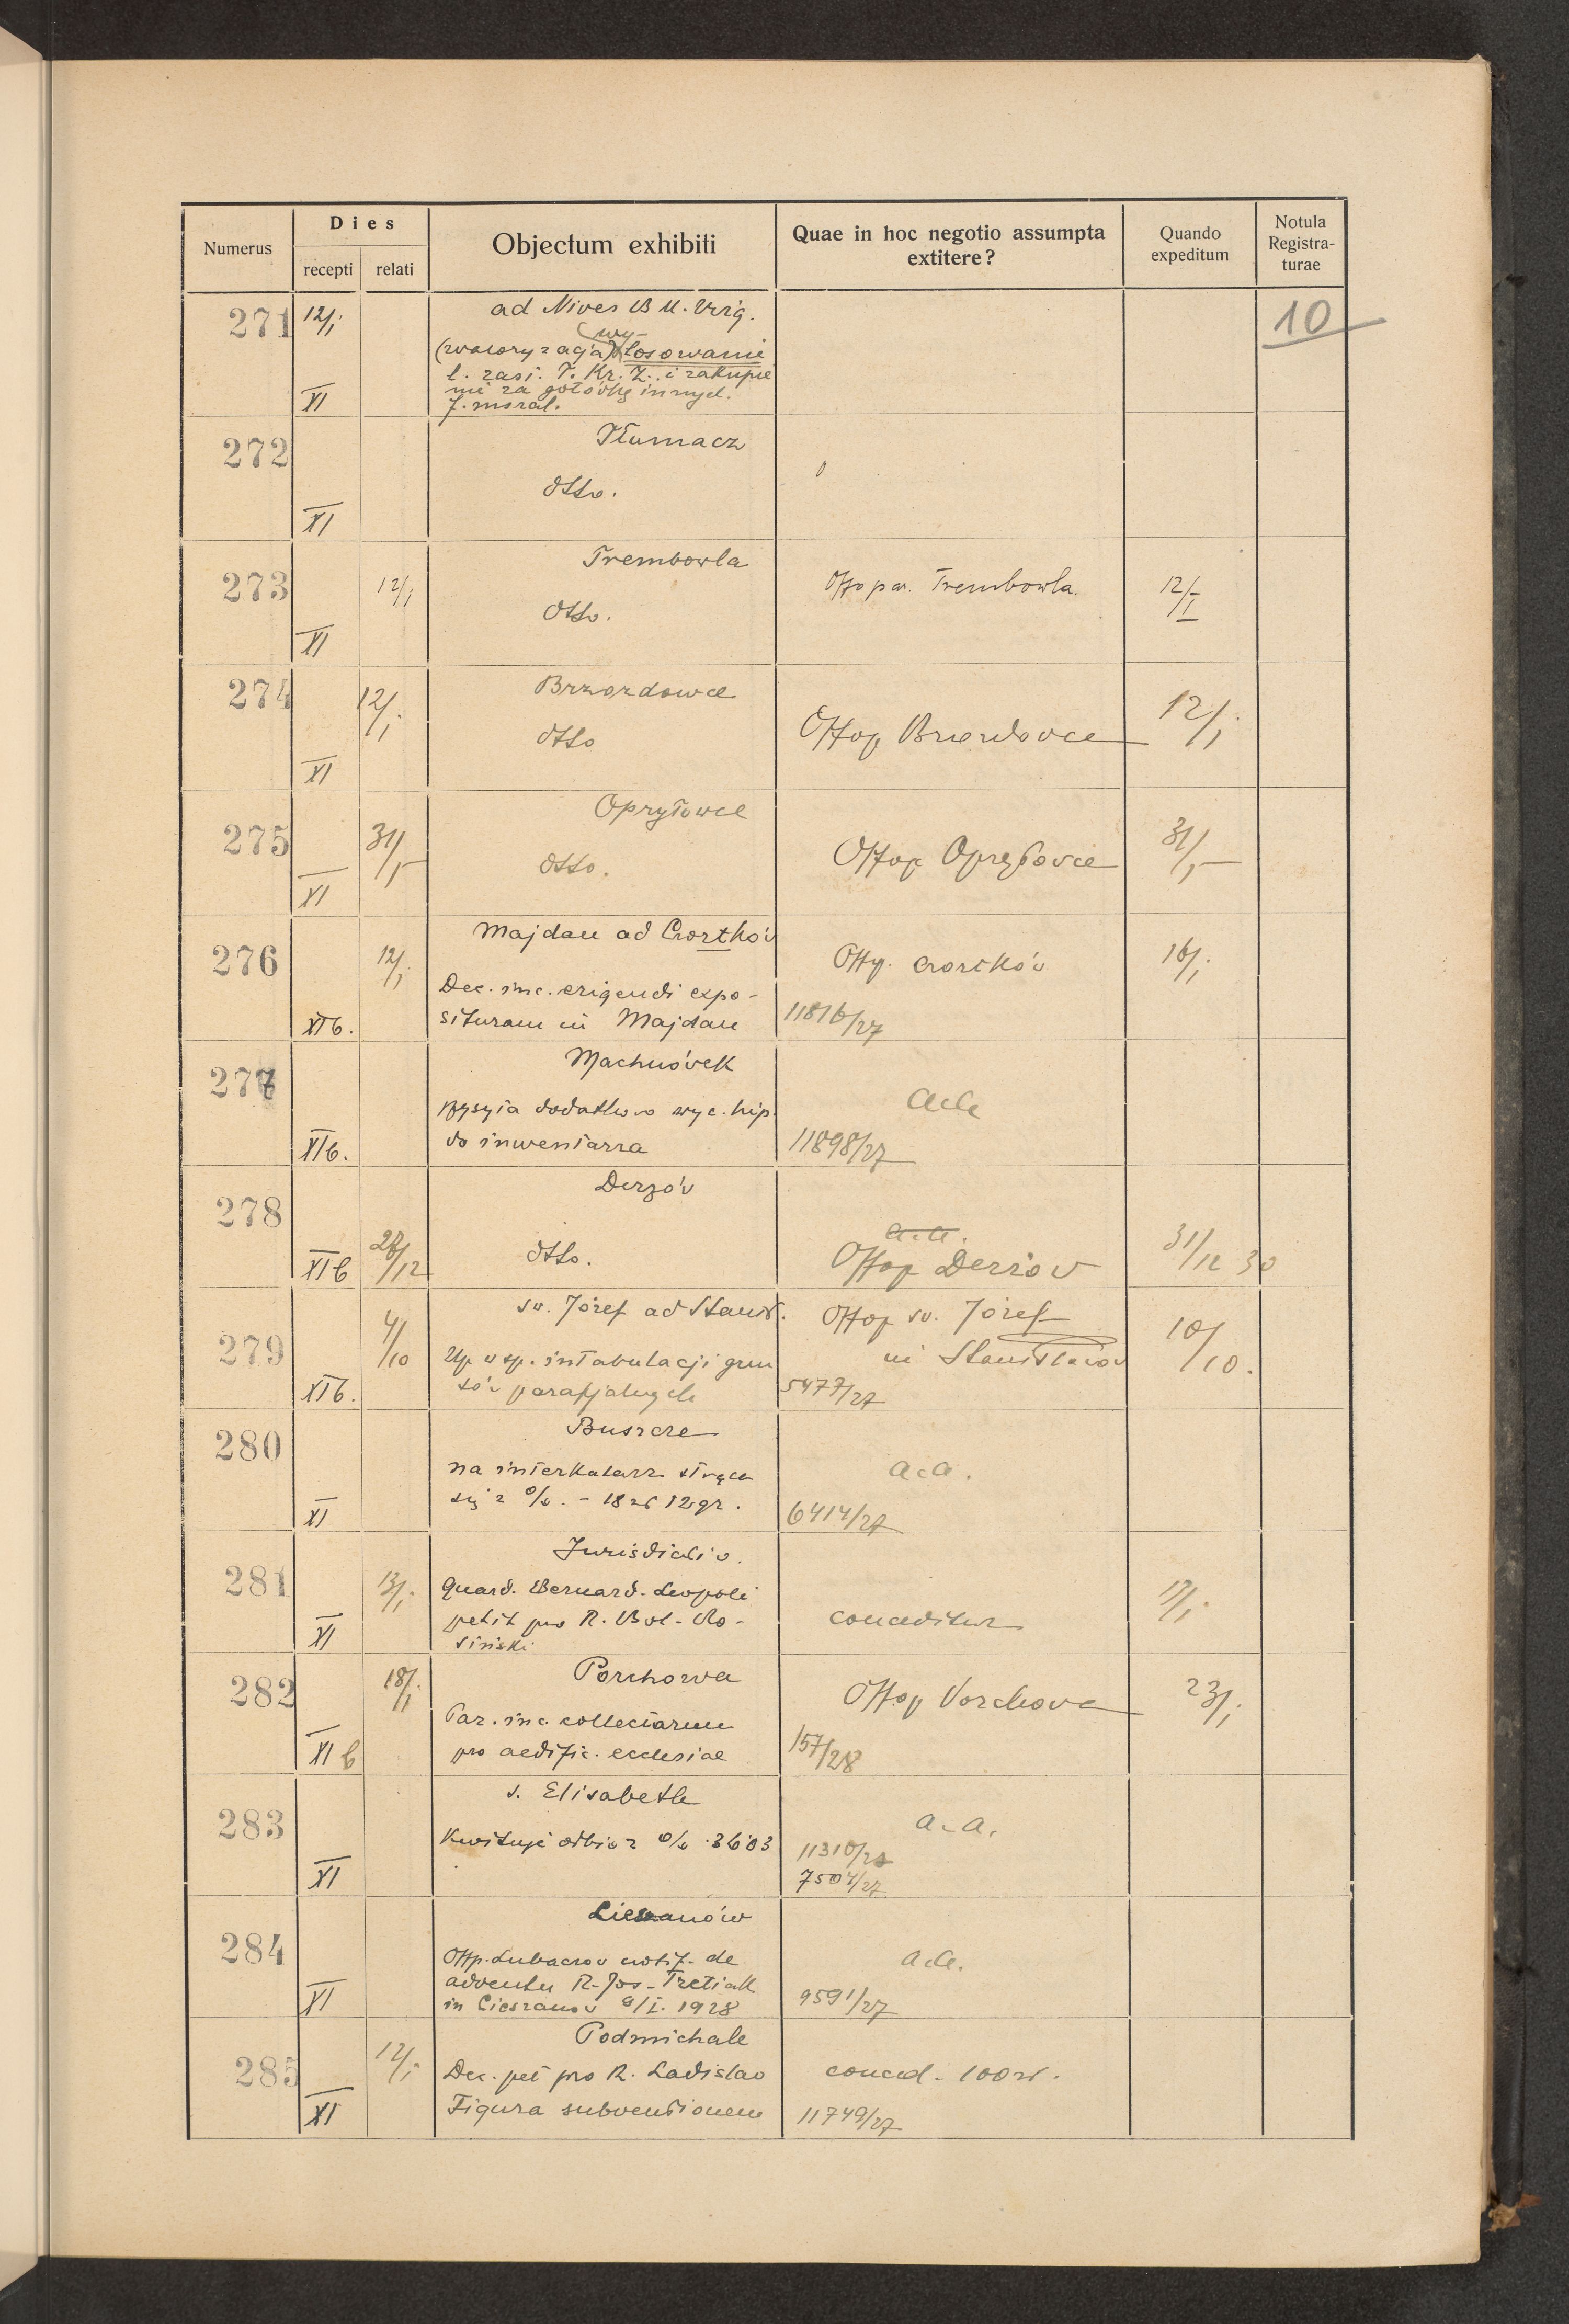 Numerus
Dies
recepti relati
Objectum exhibiti
Quae in hoc negotio assumpta
extitere?
Quando
expeditum
Notula
Registra-
turae
10
271 12/i XI
ad Nives B M. Virg.
wy-
losowanie
l. zast. T. Kr. Z. i zakupie
nie za gotówkę innych.
272 XI
Tłumacz
dtto.
273 XI 12/i
Trembowla
dtto.
Offo par. Trembowla 12/I
274 XI 12/i
Brzozdowce
dtto
Offop Brzozdovce 12/i
275 XI 31/i
Opryłowce
dtto.
Offop Opryłovce 31/i
276 XIb. 12/i
Majdan ad Czortków
Dec. inc. erigendi expo-
situram in Majdan
Offp. Czortków 16/i
11816/27
277 XIb.
Machnówek
dodatkowo wyc. hip
do inwentarza
a a
11898/27
278 XIb 28/12
Derzów
dtto.
a. a.
Offop Derżów 31/12 30
279 XIb. 4/10
sv. Józef ad Stanisł.
Up. w sp. intabulacji grun
tów parafjalnych
Offop sv. Józef
in Stanisławów 10/10.
5477/27
280 XI
Buszcze
na interkalarz
się z %. - 18 zł 12 gr.
a. a.
6414/27
281 XI 13/i
Jurisdictio.
Guard. Bernard. Leopoli
petit pro R. Bol. Ro-
siński
conceditur 17/i
282 XI b 18/i
Porchowa
Par. inc. collectarum
pro aedific. ecclesiae
Offop Porchova 23/i
157/28
283 XI
s. Elisabeth
Kwituje odbiór % 36.03
a. a.
11310/27
7504/27
284 XI
Cieszanów
Offp. Lubaczov notif. de
adventu R. Jos. Tretiak
in Cieszanov 9/I. 1928
a. a.
9591/27
285 XI 12/i
Podmichale
Dec. pet pro R. Ladislao
Figura subventionem
conced. 100 zł.
11749/27